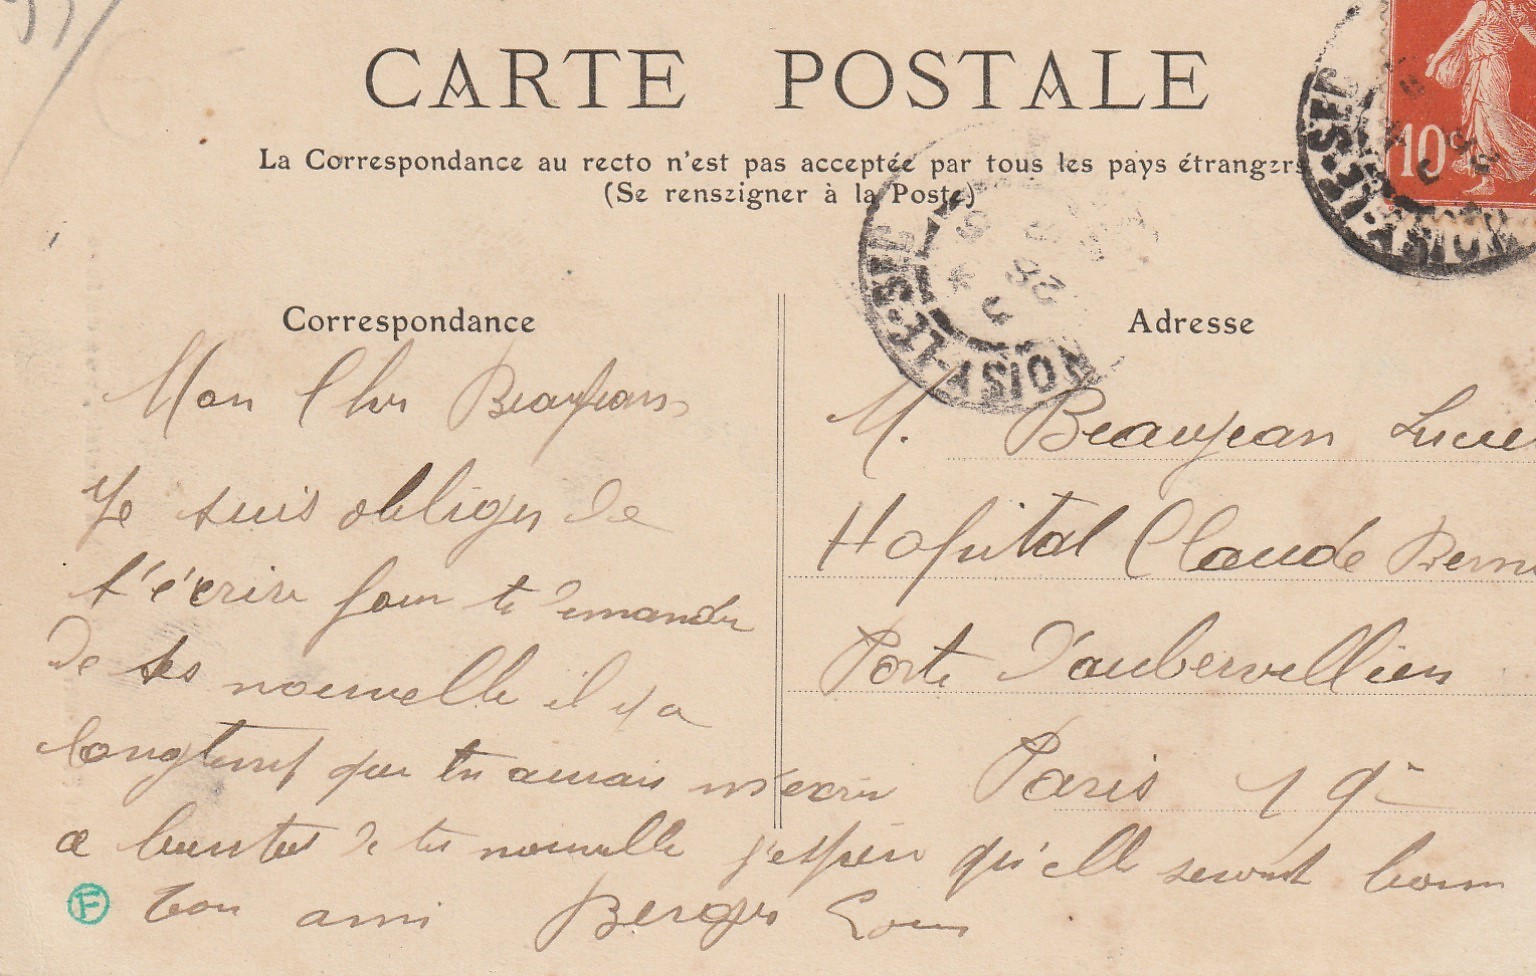 CARTE POSTALE
La Correspondance au recto n'est pas acceptée par tous les pays étrangers
(Se renseigner à la Poste)
NOISY-LE-SEC
28
10
NOISY-LE-SEC
Correspondance
Adresse
Mon Cher Beaujean
Je suis obliger de
t'écrire pour te demander
de tes nouvelle il y a
longtemps que tu aurais m'écrire
a bientot de tes nouvelle j'espère qu'elle seront bonne
ton ami Berger Louis
M. Beaujean Lucie
Hopital Claude Berna
Porte d'aubervellien
Paris 19e
F